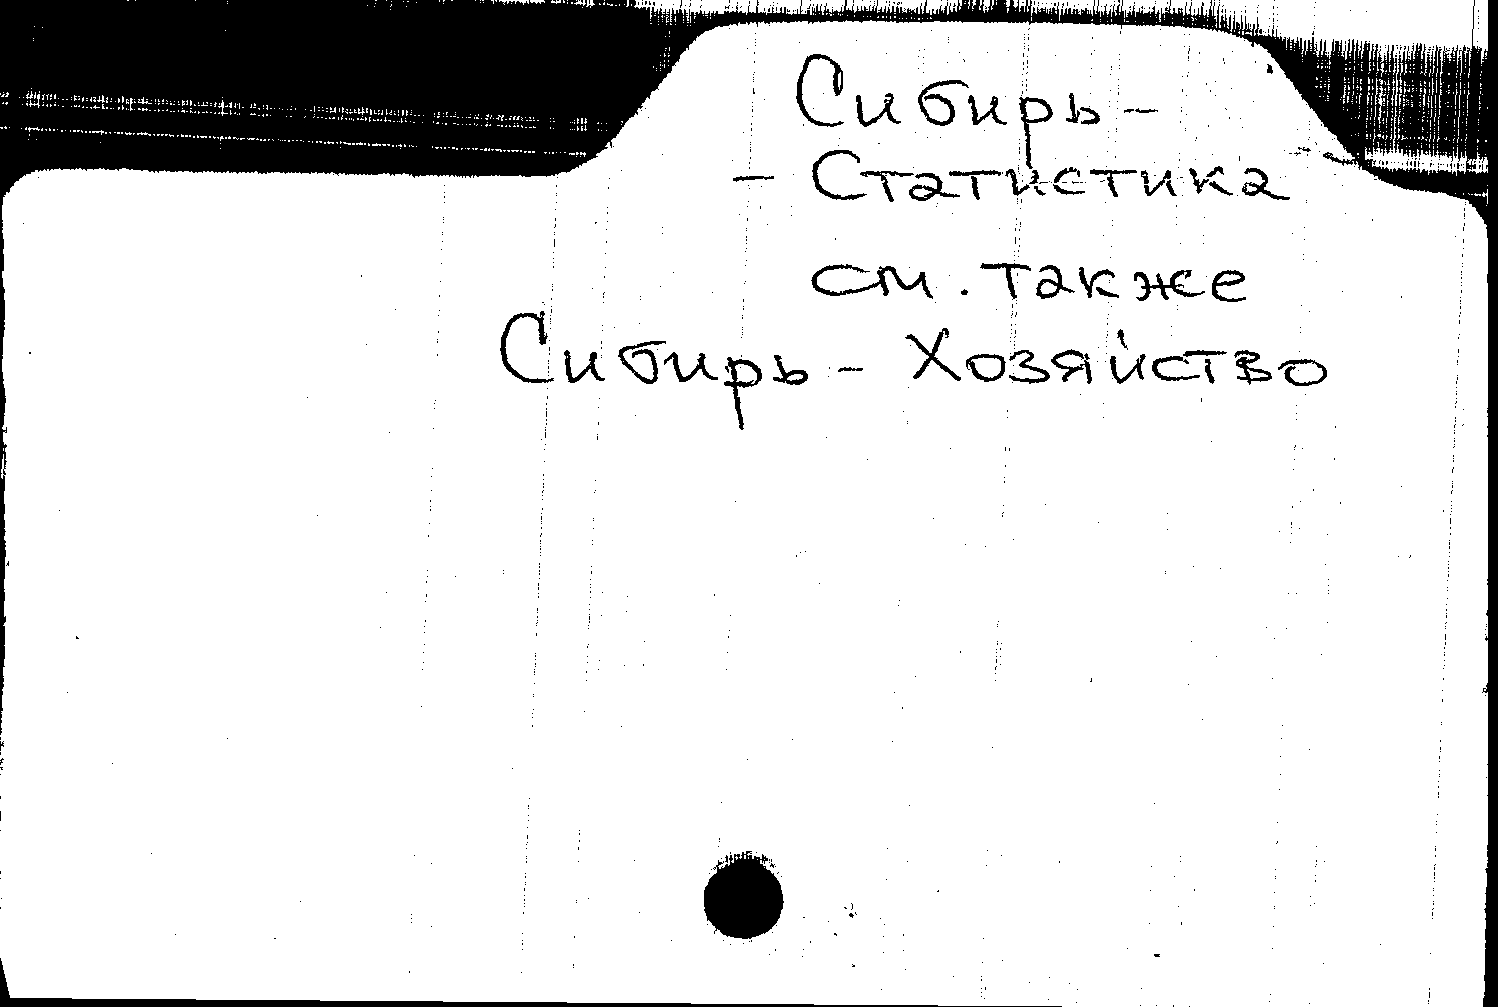 Сибирь -
- Статистика
см. также
Сибирь - Хозяйство